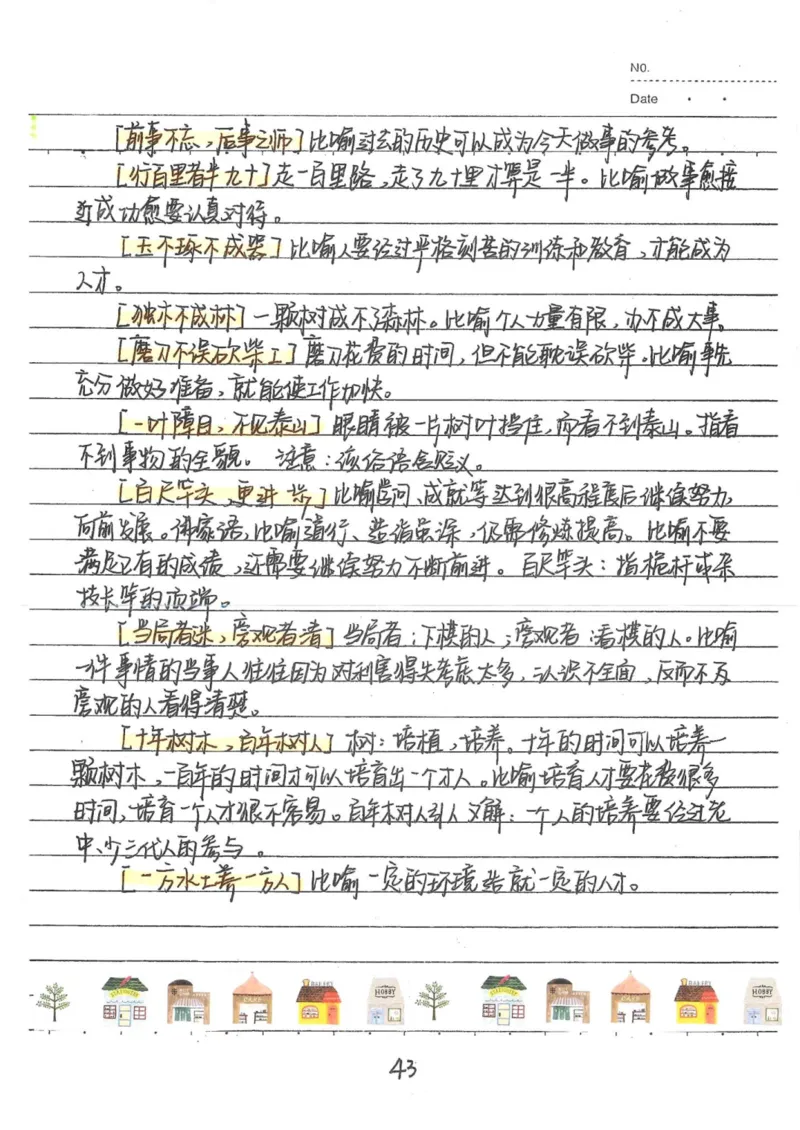 No.
Date
[前事不忘,后事之师]比喻过去的历史可以成为今天做事的参考。
[行百里者半九十]走一百里路,走了九十里才算是一半。比喻做事愈接
近成功愈要认真对待。
[玉不琢不成器]比喻人要经过严格刻苦的训练和教育,才能成为
人才。
[独木不成林]一颗树成不了森林。比喻个人力量有限,办不成大事。
[磨刀不误砍柴工]磨刀花费的时间,但不能耽误砍柴。比喻事先
充分做好准备,就能使工作加快。
[一叶障目,不见泰山]眼睛被一片树叶挡住,而看不到泰山。指看
不到事物的全貌。 注意:该俗语含贬义。
[百尺竿头,更进一步]比喻学问、成就等达到很高程度后继续努力,
向前发展。佛家语,比喻道行、造诣虽深,仍需修炼提高。比喻不要
满足已有的成绩,还需要继续努力不断前进。百尺竿头:指桅杆或杂
技长竿的顶端。
[当局者迷,旁观者清]当局者:下模的人;旁观者:看模的人。比喻
一件事情的当事人往往因为对利害得失考虑太多,认识不全面,反而不及
旁观的人看得清楚。
[十年树木,百年树人]树:培植,培养。十年的时间可以培养一
颗树木,一百年的时间才可以培育出一个才人。比喻培育人才要花费很多
时间,培育一个人才很不容易。百年树人引人义解:一个人的培养要经过老
中、少三代人的参与。
[一方水土养一方人]比喻一定的环境造就一定的人才。
BAKERY
HOBBY
BAKERY
HOBBY
43